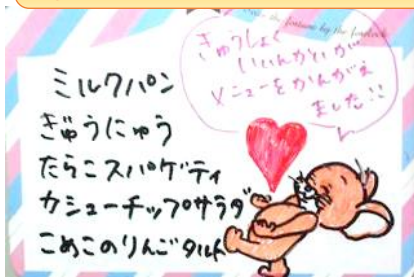 きゅうしょく
いいんかいが
メニューをかんがえ
ました!!
ミルクパン
ぎゅうにゅう
たらこスパゲティ
カシューチップサラダ
こめこのりんごタルト